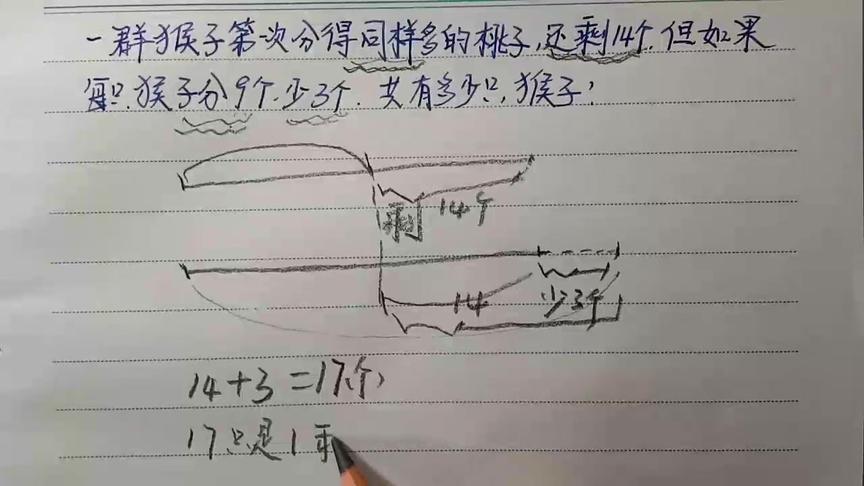 一群猴子第一次分得同样多的桃子,还剩14个.但如果
每只猴子分9个.少3个.共有多少只,猴子?
剩 14个
14 少3个
14+3=17(个)
17只是1